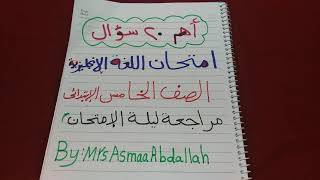 أهم ٢٠ سؤال
امتحان اللغة الإنجليزية
الصف الخامس الإبتدائى
مراجعة ليلة الإمتحان
By: Mrs Asmaa Abdallah